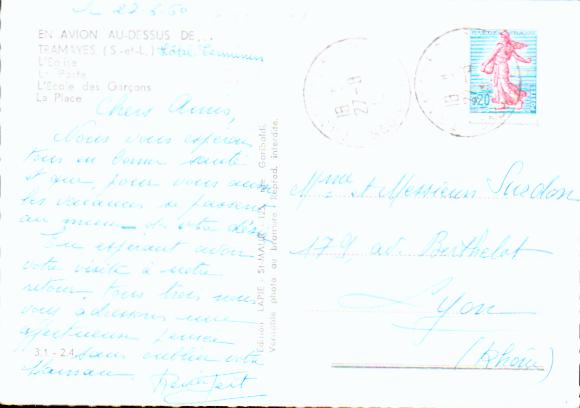 27-8-60
EN AVION AU-DESSUS DE...
TRAMAYES (S.-et-L.) Côté Communes
L'Eglise
La Poste
L'Ecole des Garçons
La Place
Chers Amis,
Nous vous espérons
tous en bonne santé
et que, pour vous aussi
les vacances se passent
au mieux de vos désirs
En espérant avoir
votre visite à notre
retour, tous trois nous
vous adressons une
affectueuse pensée
Sans oublier votre
Maman.
31 - 2.4
Edition LAPIE, ST-MAUR, Rue Garibaldi,
Véritable photo au bromure, Reprod. interdite.
0,20
POSTES
27-8
Mme et Messieurs
179, av. Berthelot
Lyon
(Rhône)